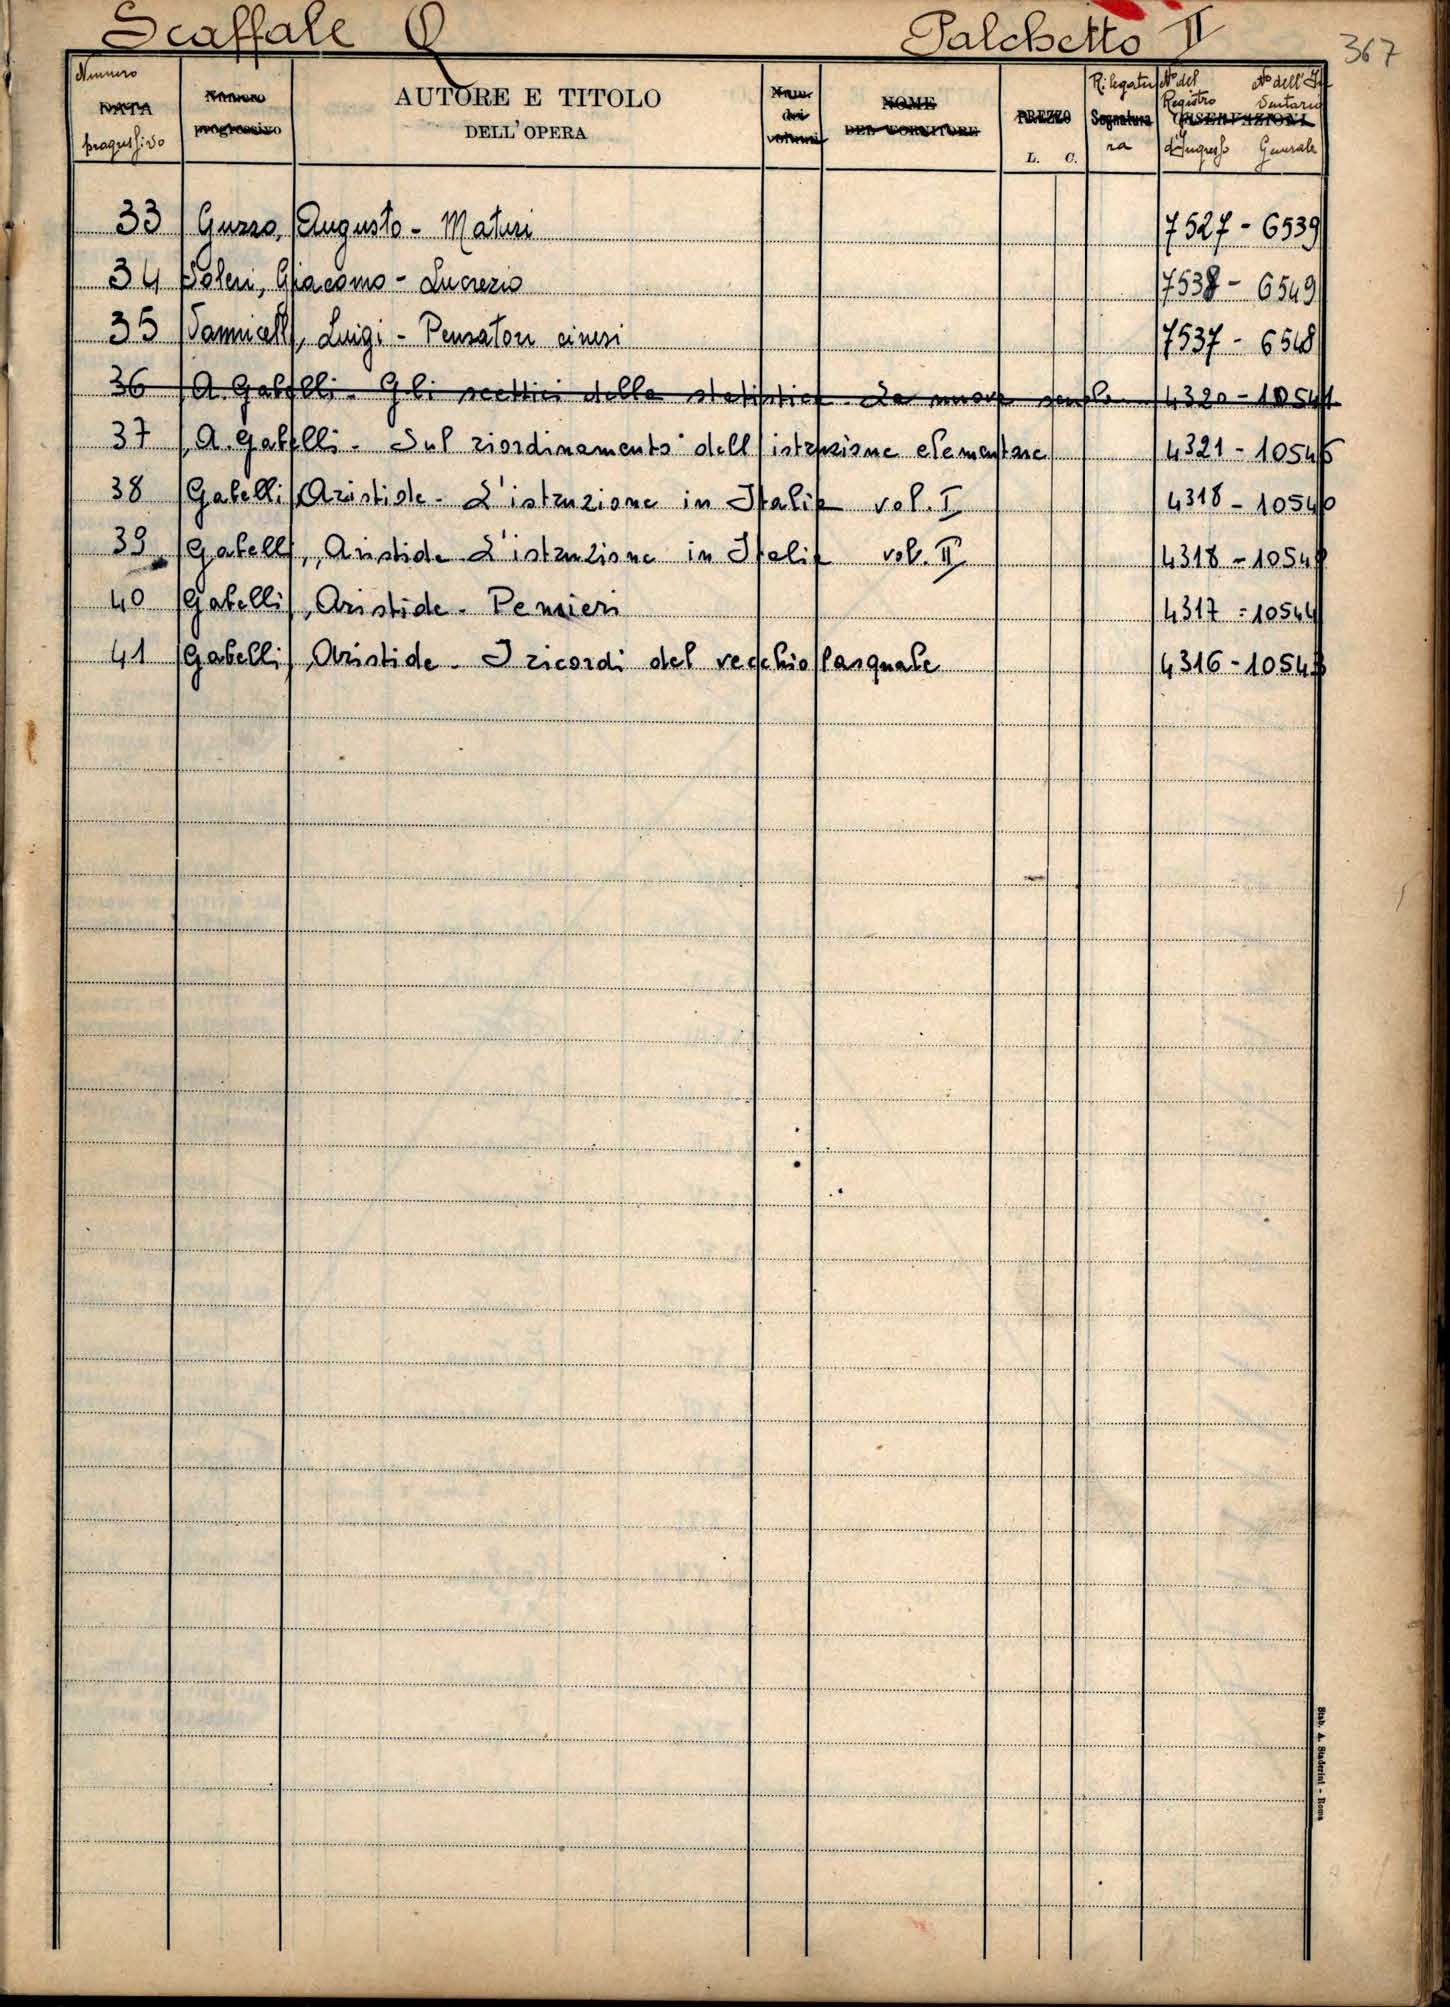 Scaffale Q Palchetto II 367
Numero DATA progressivo
Numero progressivo
AUTORE E TITOLO
DELL'OPERA
Num. dei volumi
NOME DEL FORNITORE
PREZZO
L. C.
Rilegatu Segnatura ra
No del Registro d'Ingresso No dell'Inventario Generale
OSSERVAZIONI
33 Guzzo, Augusto - Maturi 7527 - 6539
34 Soleri, Giacomo - Lucrezio 7538 - 6549
35 Tannicelli, Luigi - Pensatori cinesi 7537 - 6548
36 A. Gabelli - Gli scettici della statistica - La nuova 4320 - 10541
37 A. Gabelli - Sul riordinamento dell istruzione elementare 4321 - 10545
38 Gabelli, Aristide - L'istruzione in Italia vol. I 4318 - 10540
39 Gabelli, Aristide L'istruzione in Italia vol. II 4318 - 10542
40 Gabelli, Aristide - Pensieri 4317 - 10544
41 Gabelli, Aristide - I ricordi del vecchio Pasquale 4316 - 10543
Stab. A. Staderini - Roma